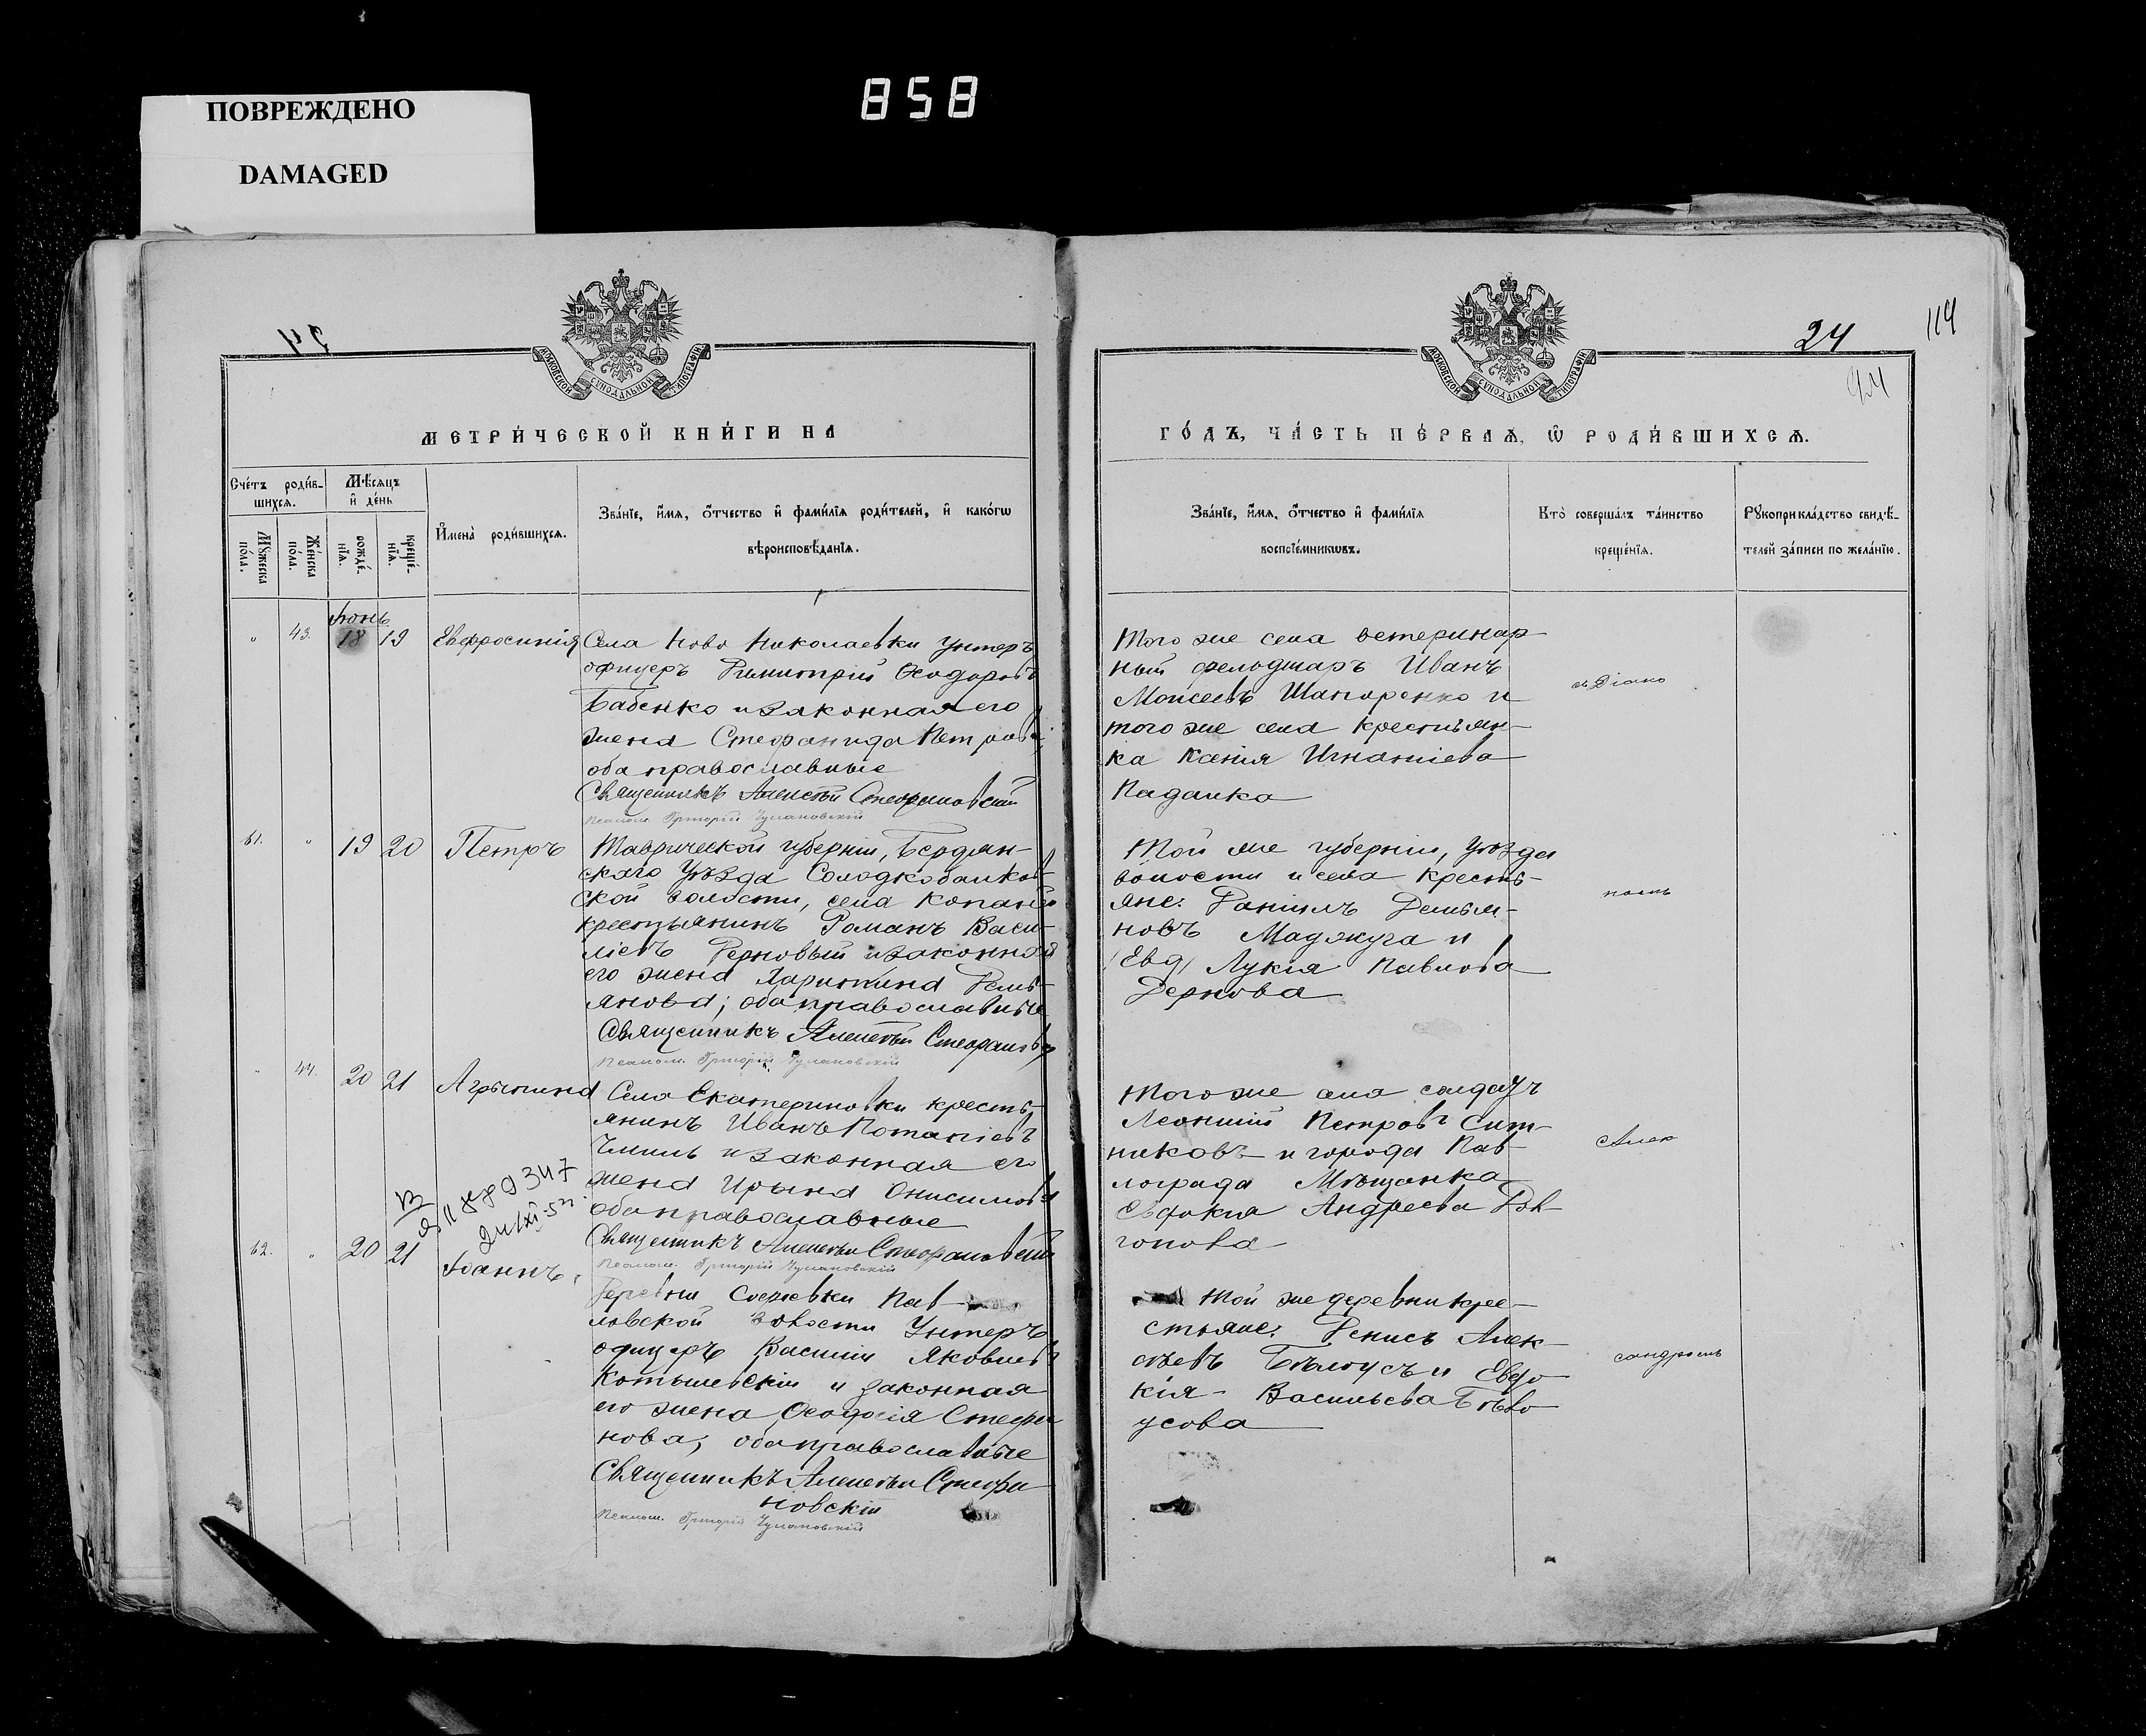 ПОВРЕЖДЕНО
DAMAGED
858
24
МЕТРИ́ЧЕСКОЙ КНИ́ГИ НА
Сче́тъ роди́в-
шихсѧ.
Мѣ́сяцъ
и҆ де́нь
Мꙋ́жеска
по́ла.
Же́нска
по́ла.
рожде́-
нїѧ.
креще́-
нїѧ.
И҆мена̀ роди́вшихсѧ.
Зва́нїе, и҆́мѧ, ѻ҆́тчество и҆ фами́лїѧ роди́телей, и҆ како́гѡ
вѣроисповѣ́данїѧ.
Іюнь
" 43. 18 19 Евфросинія
Села Ново Николаевки Унтеръ
офицеръ Димитрій Ѳеодоровъ
Бабенко и законная его
жена Стефанида Петрова
оба православные
Священникъ Алексѣй Стефановскій
Псалом. Григорій Чумановскій
61. " 19 20 Петръ
Таврической губерніи, Бердян-
скаго Уѣзда Солодкобалков-
ской волости, села Копаней
крестьянинъ Романъ Васи-
ліевъ Терновый и законная
его жена Харитина Демь-
янова; оба православные
Священникъ Алексѣй Стефановск
Псалом. Григорій Чумановскій
" 44. 20 21 Агрипина
Села Екатериновки кресть-
янинъ Иванъ Потапіевъ
Чмиль и законная его
жена Ирина Онисимова
оба православные
Священникъ Алексѣй Стефановскій
Псалом. Григорій Чумановскій
62. " 20 21 Іоаннъ
Деревни Софіевки Пав-
ловской волости Унтеръ
офицеръ Василій Яковлевъ
Котышевскій и законная
его жена Ѳеодосія Стефа
нова; оба православные
Священникъ Алексѣй Стефа
новскій
Псалом. Григорій Чумановскій
24
114
44
ГО́ДЪ, ЧА́СТЬ ПЕ́РВАѦ, Ѡ҆ РОДИ́ВШИХСѦ.
Зва́нїе, и҆́мѧ, ѻ҆́тчество и҆ фами́лїѧ
воспрїе́мникѡвъ.
Кто̀ соверша́лъ та́инство
креще́нїѧ.
Рꙋкоприкла́дство свидѣ́-
телей за́писи по жела́нїю.
Того же села ветеринар-
ный фельдшаръ Иванъ
Моисеевъ Шапоренко и
того же села крестьян-
ка Ксенія Игнатіева
Падалка
Діако
Той же губерніи, уѣзда
волости и села кресть-
яне: Даніилъ Демья-
новъ Маджуга и
/Евд/ Лукія Павлова
Дернова
номъ
Того же села солдатъ
Леонтій Петровъ Сит-
никовъ и города Пав-
лограда Мѣщанка
Евдокія Андреева Дол-
гопова
Алек
Той же деревни кре-
стьяне: Денисъ Алек-
сѣевъ Бѣлоусъ и Евдо
кія Васильева Бѣло
усова
сандромъ